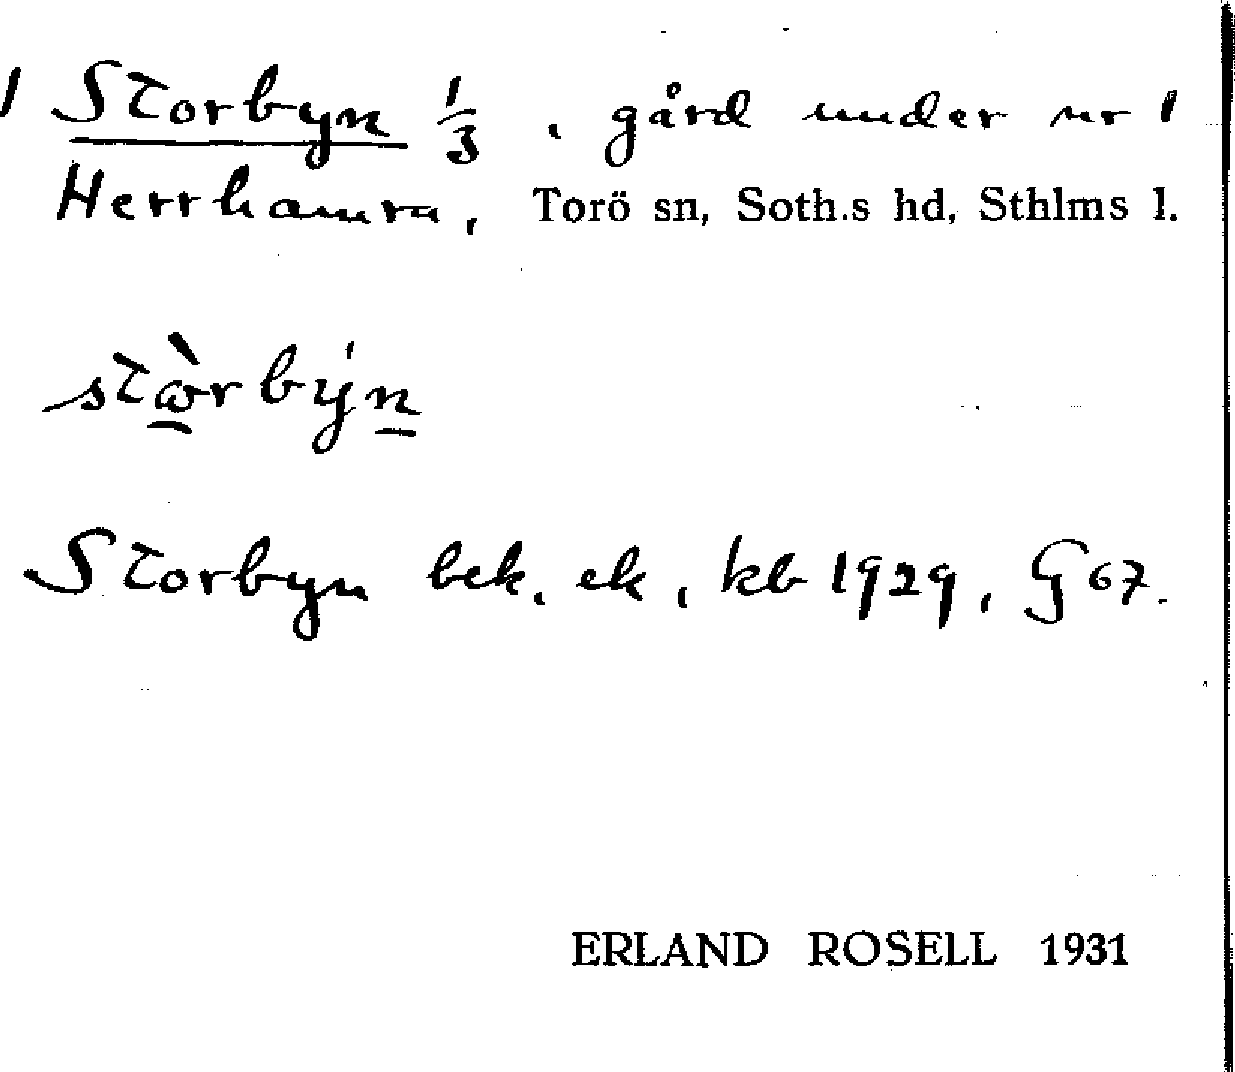 1 Storbyn 1/3, gård under nr 1
Herrhamra, Torö sn, Soth.s hd, Sthlms l.
stὼrbýn
Storbyn bek. ek, kb 1929, G 67.
ERLAND ROSELL 1931